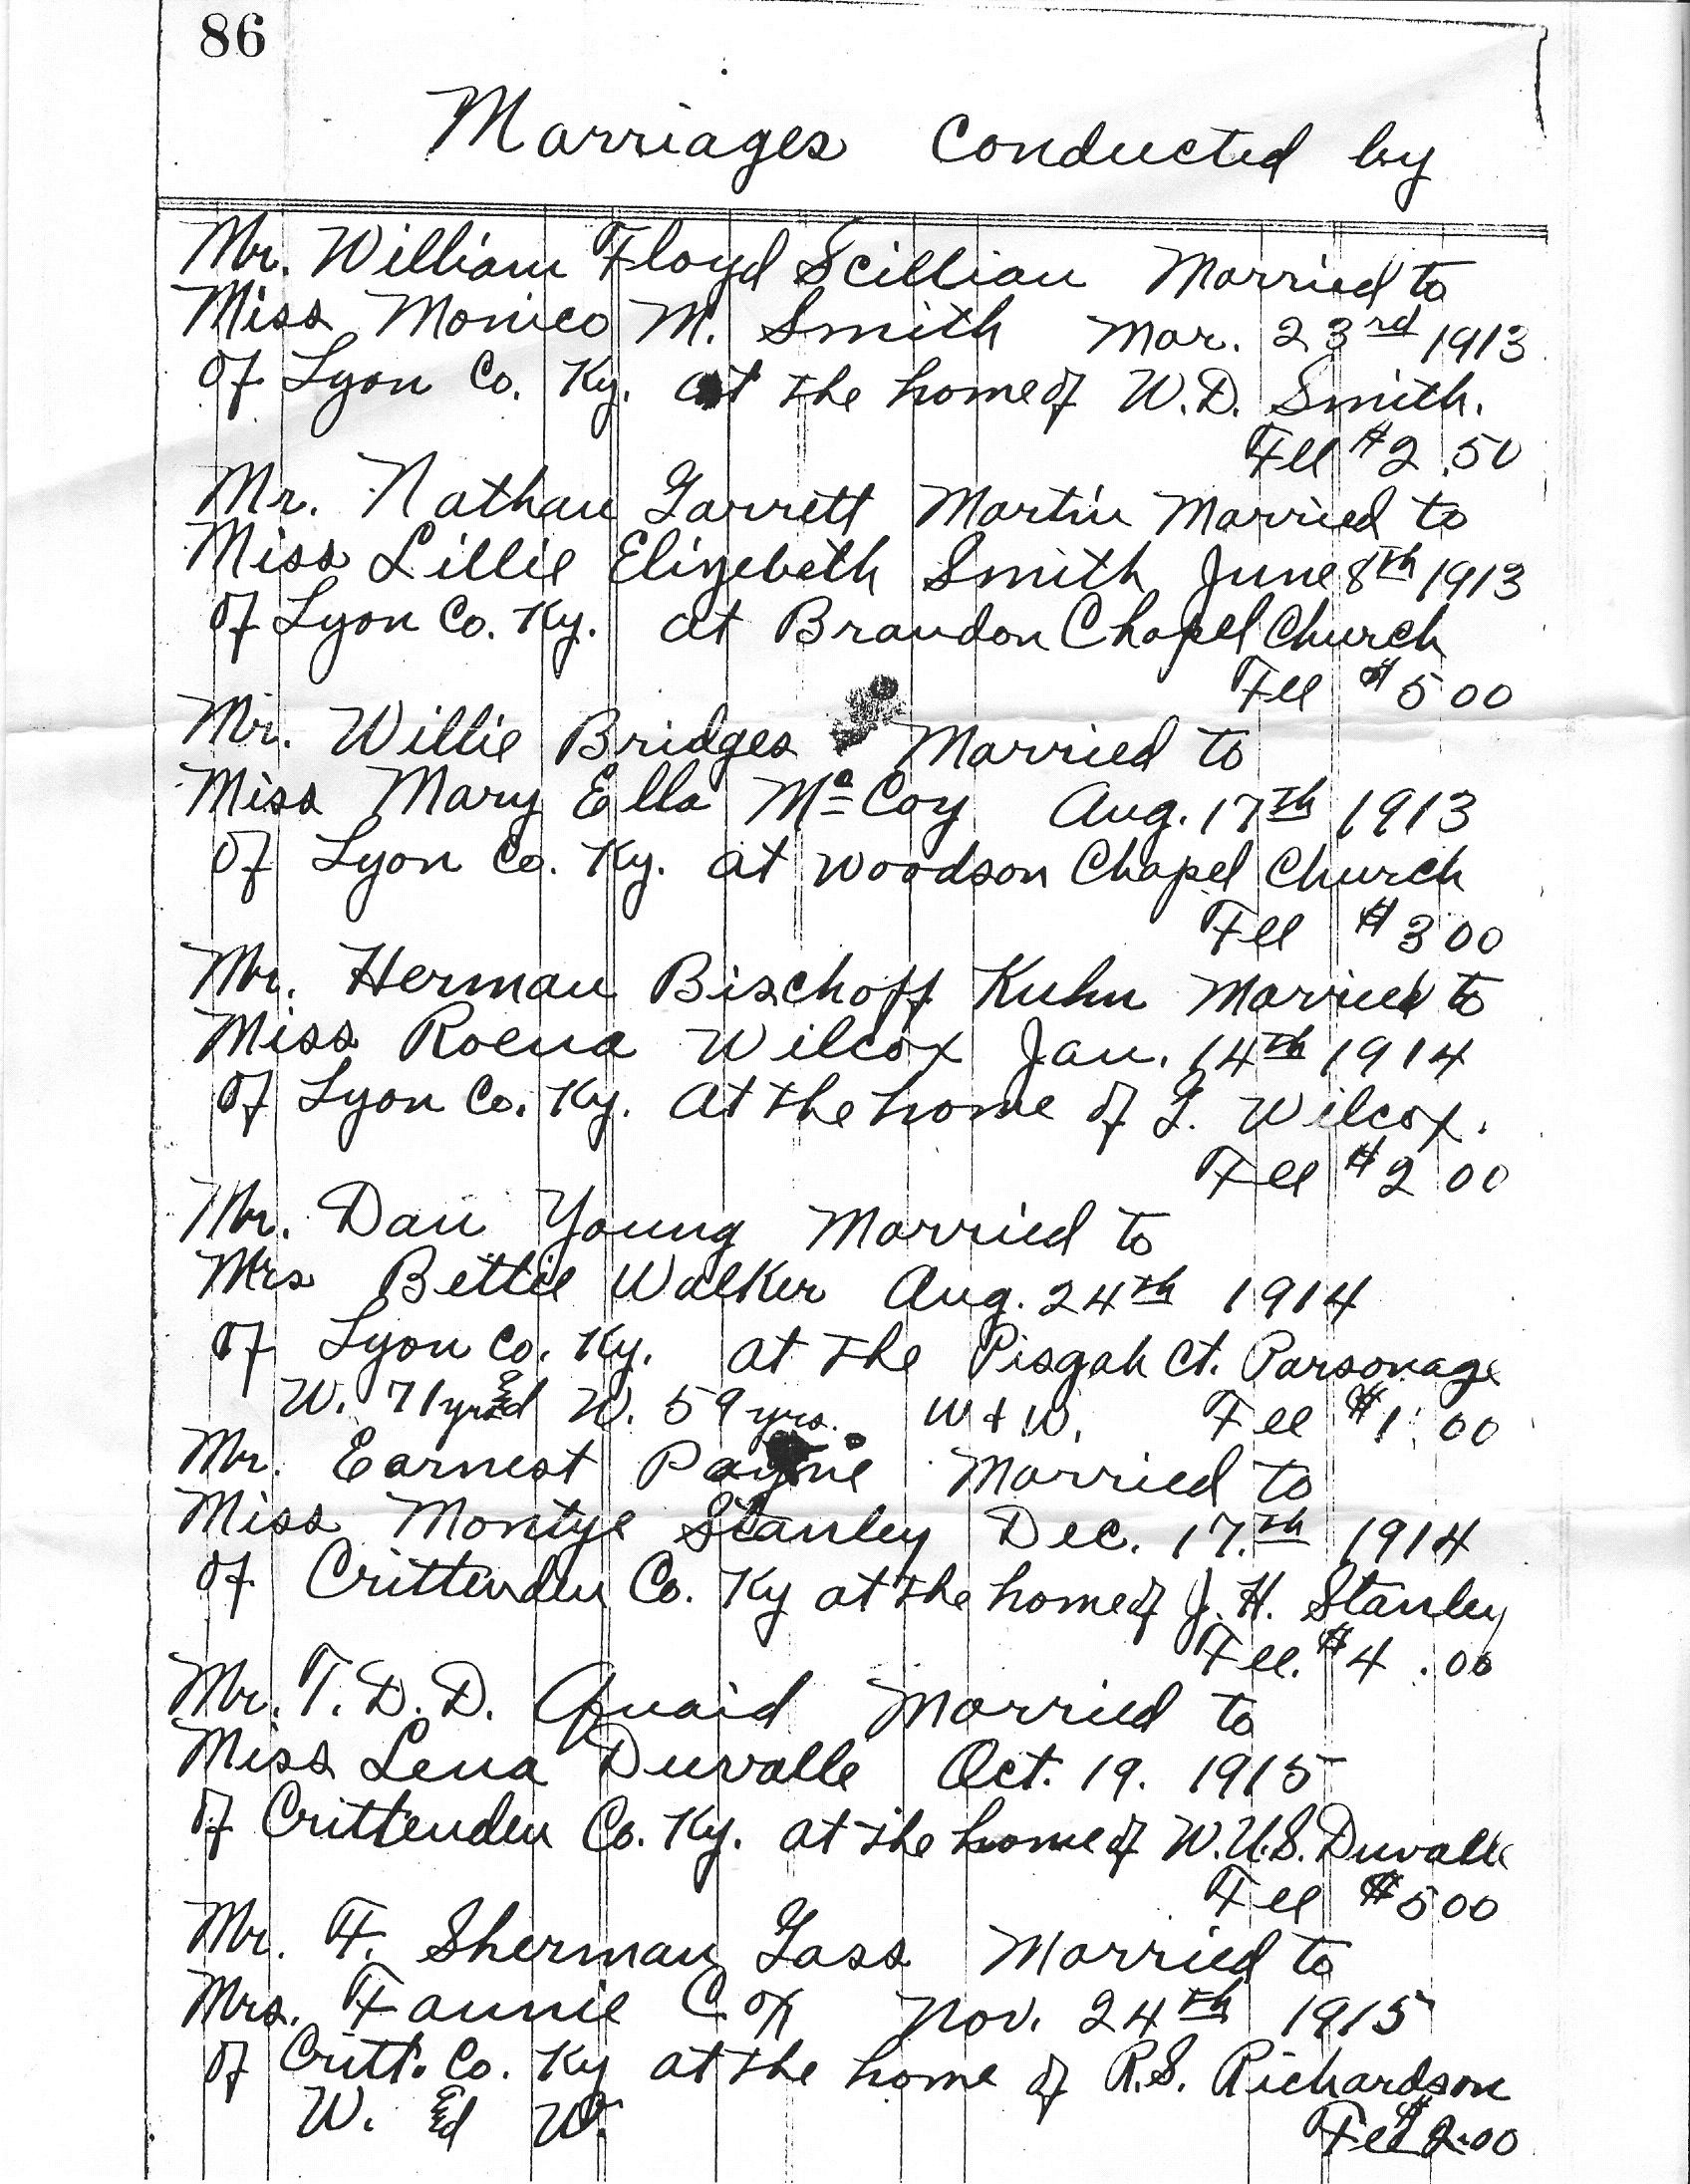 86
Marriages Conducted by
Mr. William Floyd Scillian Married to
Miss Monico M. Smith Mar. 23rd 1913
of Lyon Co. Ky. at the home of W.D. Smith.
Fee $2.50
Mr. Nathan Garrett Martin Married to
Miss Lillie Elizebeth Smith June 8th 1913
of Lyon Co. Ky. at Brandon Chapel Church
Fee $5 00
Mr. Willie Bridges Married to
Miss Mary Ella McCoy Aug. 17th 1913
of Lyon Co. Ky. at Woodson Chapel Church
Fee $3 00
Mr. Herman Bischoff Kuhn Married to
Miss Roena Wilcox Jan. 14th 1914
of Lyon Co. Ky. At the home of G. Wilcox.
Fee $2 00
Mr. Dan Young Married to
Mrs Bettie Walker Aug. 24th 1914
of Lyon Co. Ky. at the Pisgah Ct. Parsonage
W. 71 yrs & W. 59 yrs. W & W. Fee $1.00
Mr. Earnest Payne Married to
Miss Montye Stanley Dec. 17.th 1914
of Crittenden Co. Ky at the home of J. H. Stanley
Fee. $4.00
Mr. T. D. D. Quaid Married to
Miss Lena Duvalle Oct. 19. 1915
of Crittenden Co. Ky. at the home of W.U.S. Duvalle
Fee $5 00
Mr. F. Sherman Gass Married to
Mrs. Fannie Cox Nov. 24th 1915
of Critt. Co. Ky at the home of R.S. Richardson
W. & W. Fee $2.00